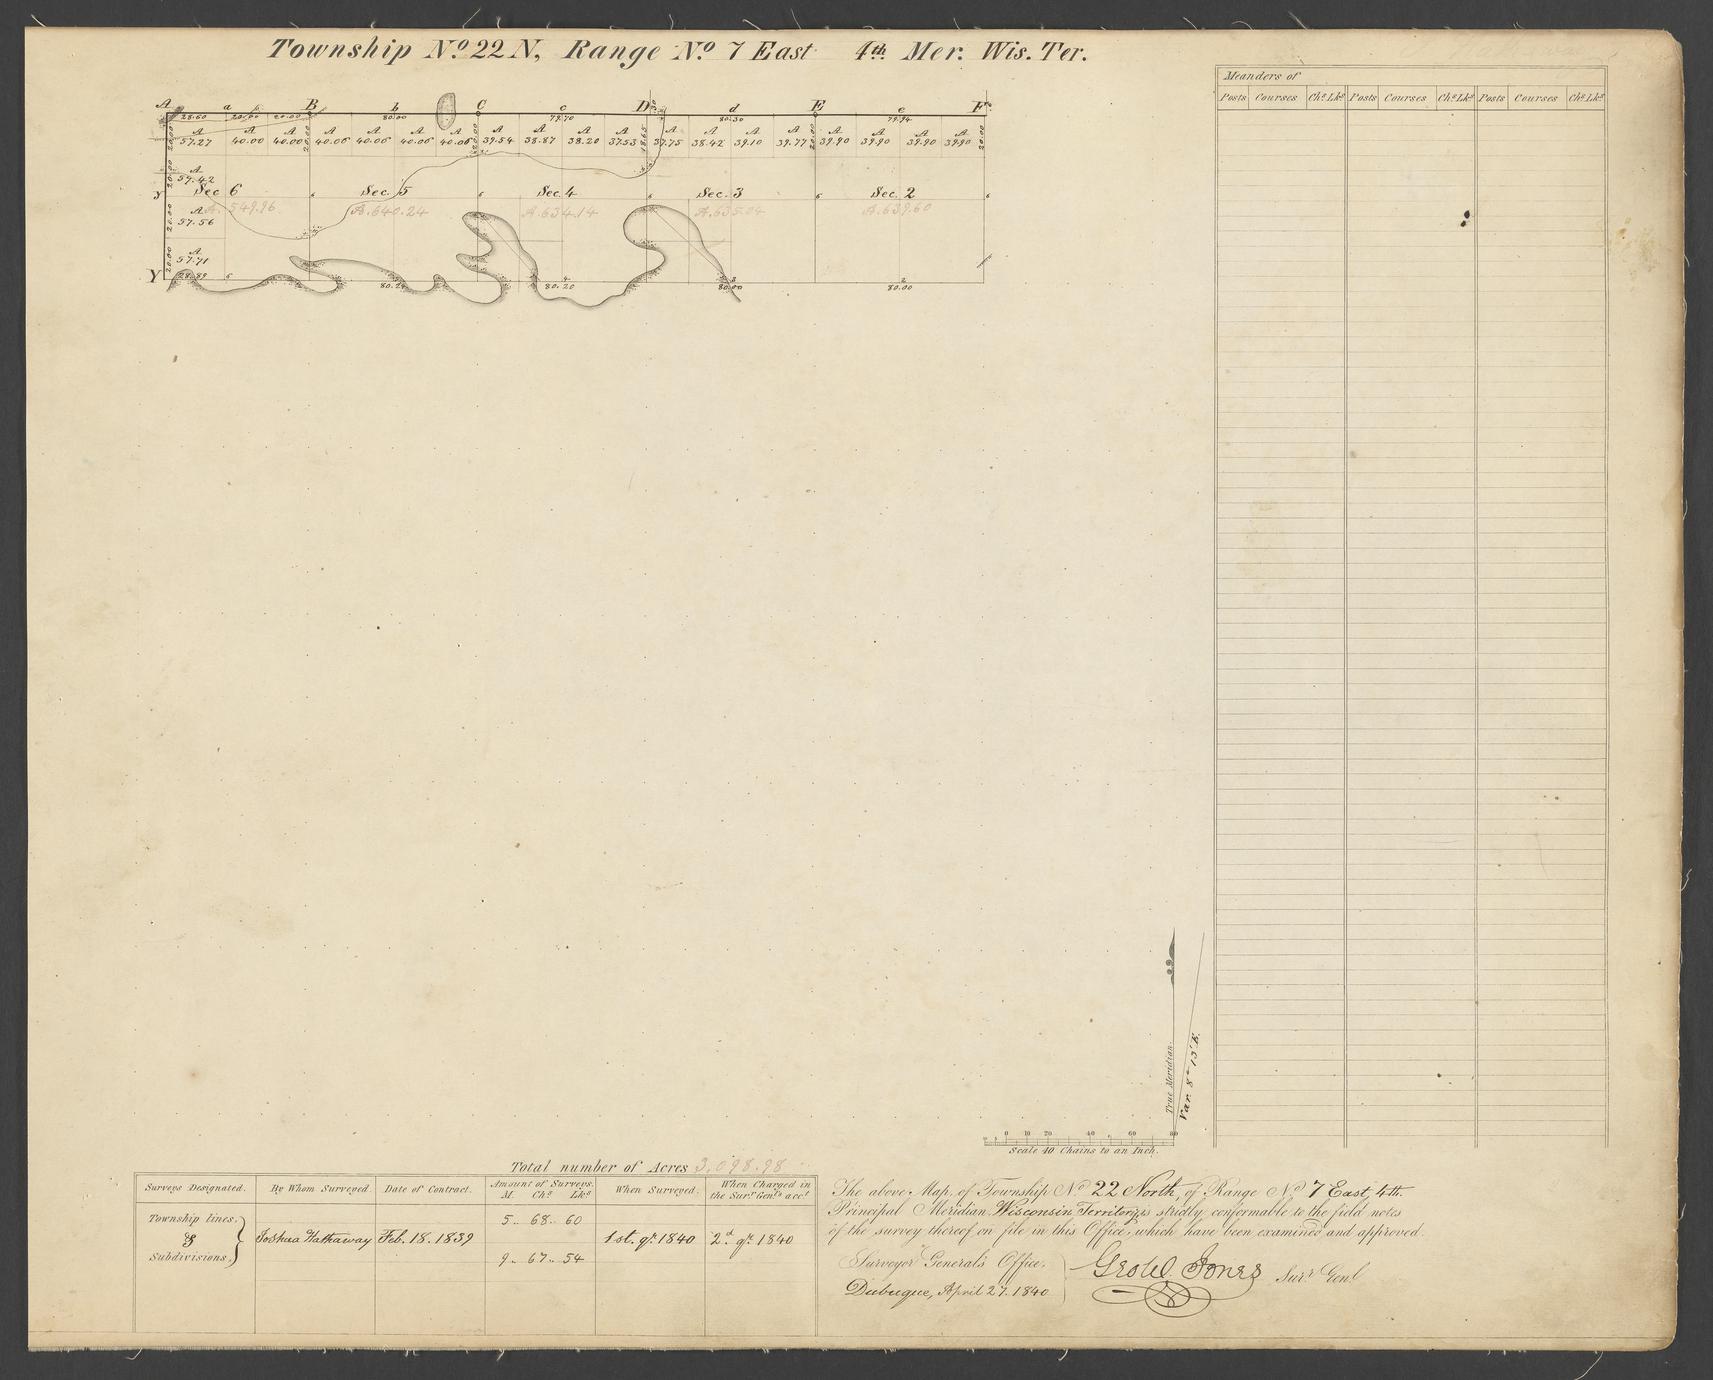 Township No. 22 N, Range No 7 East 4th Mer. Wis. Ter.
Meanders of
Posts Courses Chs Lks Posts Courses Chs Lks Posts Courses Chs Lks
A a B b C c D d E e F
28.60 20.00 20.00 80.00 79.70 80.30 79.94
A A A A A A A A A A A A A A A
57.27 40.00 40.00 40.06 40.06 40.06 40.06 39.54 38.87 38.20 37.53 37.75 38.42 39.10 39.77 39.90 39.90 39.90 39.90
A
57.42
Y Sec. 6 Sec. 5 Sec. 4 Sec. 3 Sec. 2
A. 549.96 A. 640.24 A. 634.14 A. 635.04 A. 639.60
A
57.56
A
57.71
Y 28.89 80.20 80.00 80.00
True Meridian.
Var. 8° 13' E.
0 10 20 40 60 80
Scale 40 Chains to an Inch.
Total number of Acres 3,098.98
Surveys Designated. By Whom Surveyed. Date of Contract. Amount of Surveys. M. Chs Lks When Surveyed. When Charged in the Surr Genls acct
Township lines, 5.. 68.. 60
& Joshua Hathaway Feb. 18. 1839 1st. qr. 1840 2d. qr. 1840
Subdivisions. 9.. 67.. 54
The above Map, of Township No 22 North, of Range No 7 East, 4th.
Principal Meridian, Wisconsin Territory, is strictly conformable to the field notes
of the survey thereof on file in this Office, which have been examined and approved.
Surveyor General's Office.
Dubuque, April 27. 1840
Geo W. Jones Surr Genl